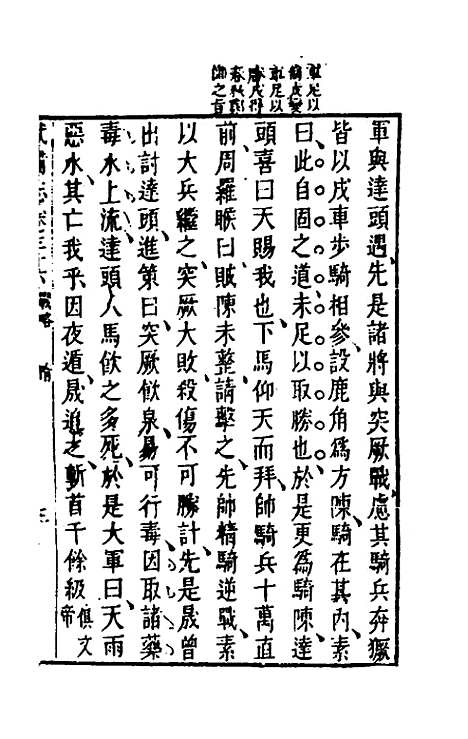 車足以
車足以
師之旨
軍與達頭遇先是諸將與突厥戰慮其騎兵奔獗
皆以戍車步騎相參設鹿角爲方陳騎在其內素
曰此自固之道未足以取勝也於是更爲騎陳達
頭喜曰天賜我也下馬仰天而拜帥騎兵十萬直
前周羅睺曰賊陳未整請擊之先帥精騎逆戰素
以大兵繼之突厥大敗殺傷不可勝計先是晟曾
出討達頭進策曰突厥飲泉易可行毒因取諸藥
毒水上流達頭人馬飲之多死於是大軍曰天雨
惡水其亡我乎因夜遁晟追之斬首千餘級俱文帝
武備志卷三十六 戰略 隋 三